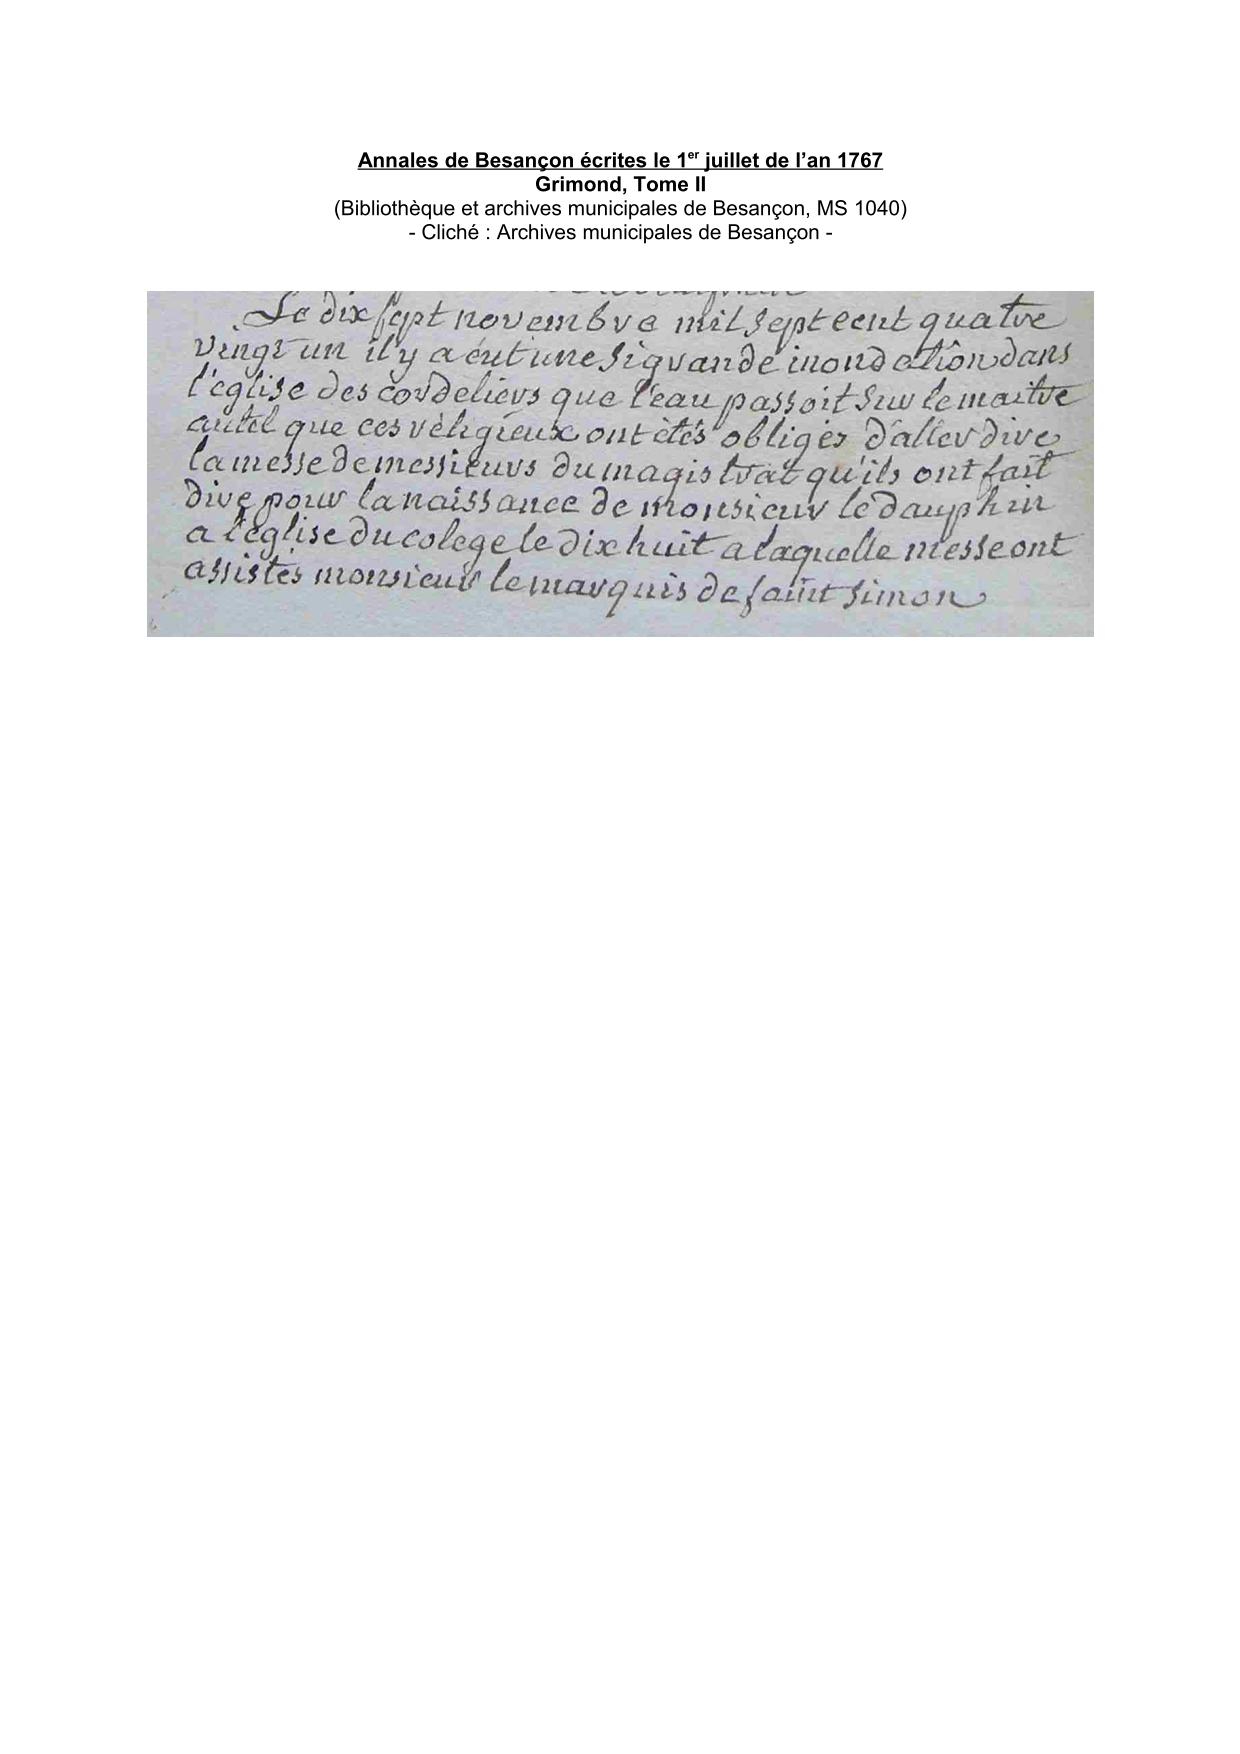 Annales de Besançon écrites le 1er juillet de l’an 1767
Grimond, Tome II
(Bibliothèque et archives municipales de Besançon, MS 1040)
- Cliché : Archives municipales de Besançon -
Le dix sept novembre mil sept cent quatre
vingt un il y a éut une si grande inondation dans
l'église des cordeliers que l'eau passoit sur le maitre
autel que ces réligieux ont étés obligés d'aller dire
la messe de messieurs du magistrat qu'ils ont fait
dire pour la naissance de monsieur le dauphin
a l'église du colege le dix huit a laquelle messe ont
assistés monsieur le marquis de saint simon